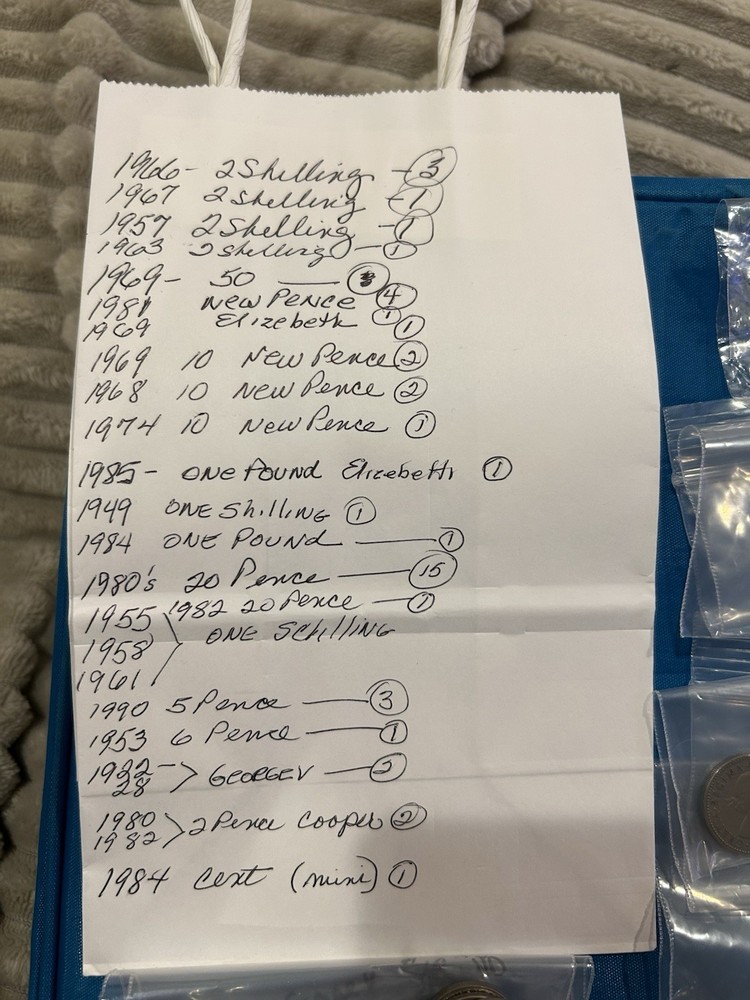 1966 - 2 Shelling - 3
1967 2 Shelling - 1
1957 2 Shelling - 1
1963 2 Shelling - 1
1969 - 50 — 3
1981 New Pence 4
1969 Elizebeth 1 1
1969 10 New Pence 2
1968 10 New Pence 2
1974 10 New Pence 1
1985 - ONE Pound Elizebeth 1
1949 ONE Shilling 1
1984 ONE POUND — 1
1980's 20 Pence — 15
1955 1982 20 Pence — 1
1958 ONE Schlling
1961
1990 5 Pence — 3
1953 6 Pence — 1
1922 - GEORGE V — 2
28
1980 2 Pence Cooper 2
1982
1984 Cent (mini) 1